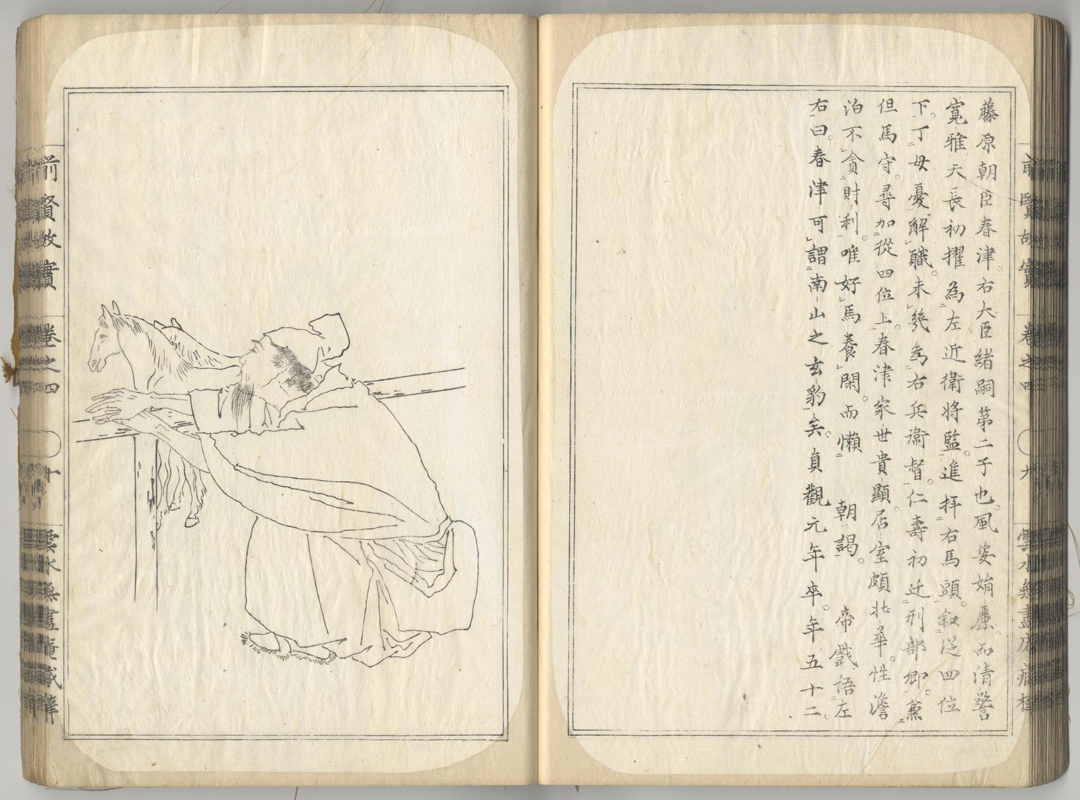 藤原朝臣春津。右大臣緒嗣第二子也。風姿婧麗。而清警
寛雅天長初擢為左近衛將監。進拜右馬頭。叙從四位
下。丁母憂解職。未幾為右兵衛督。仁壽初迁刑部卿。兼
但馬守。尋加從四位上。春津家世貴顯。居室頗壯華。性澹
泊不貪財利。唯好馬養閑。而懶 朝謁。 帝戲語左
右曰。春津可謂南山之玄豹矣。貞觀元年卒。年五十二。
前賢故實 卷之四 九 雲水無盡庵藏
前賢故實 卷之四 十 雲水無盡庵藏